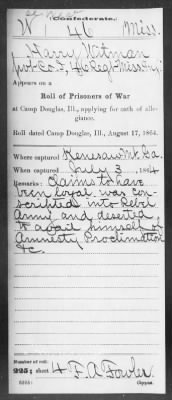 Confederate.
W 46 Miss.
Harry Witman
Appears on a
Roll of Prisoners of War
at Camp Douglas, Ill., applying for oath of alle-
giance.
Roll dated Camp Douglas, Ill., August 17, 1864.
Where captured Kenesaw Mt. Ga.
When captured July 3, 1864
Remarks: Claims to have
been loyal was con-
scripted into Rebel
Army and deserted
to avail himself of
Amnesty Proclamation
&c.
Number of roll:
225; sheet 4 F. A. Fowler
Copyist.